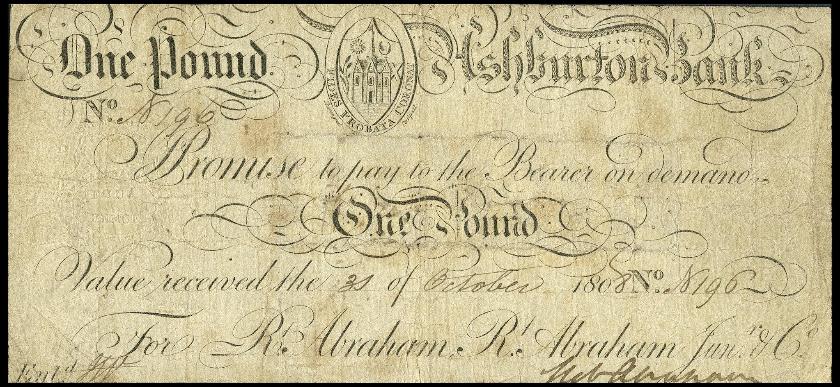 One Pound
Ashburton Bank
FIDES PROBATA CORONAT
No. N196
I Promise to pay to the Bearer on demand
One Pound
Value received the 31 of October 1808 No. N196
For Rt. Abraham, Rt. Abraham Junr. & Co.
Entd.
Abraham